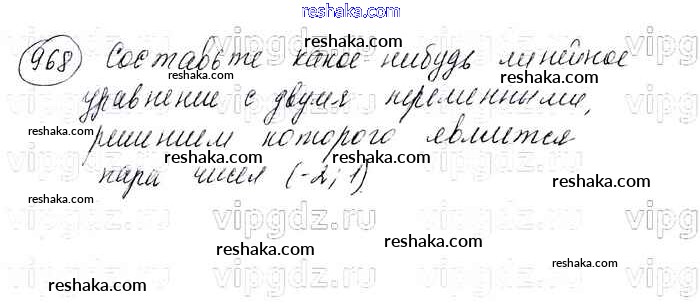 reshaka.com
968 Составьте какое-нибудь линейное
уравнение с двумя переменными,
решением которого является
пара чисел (-2; 1)
reshaka.com
reshaka.com
reshaka.com
reshaka.com
reshaka.com
reshaka.com
reshaka.com
reshaka.com
reshaka.com
reshaka.com
reshaka.com
vipgdz.ru
vipgdz.ru
vipgdz.ru
vipgdz.ru